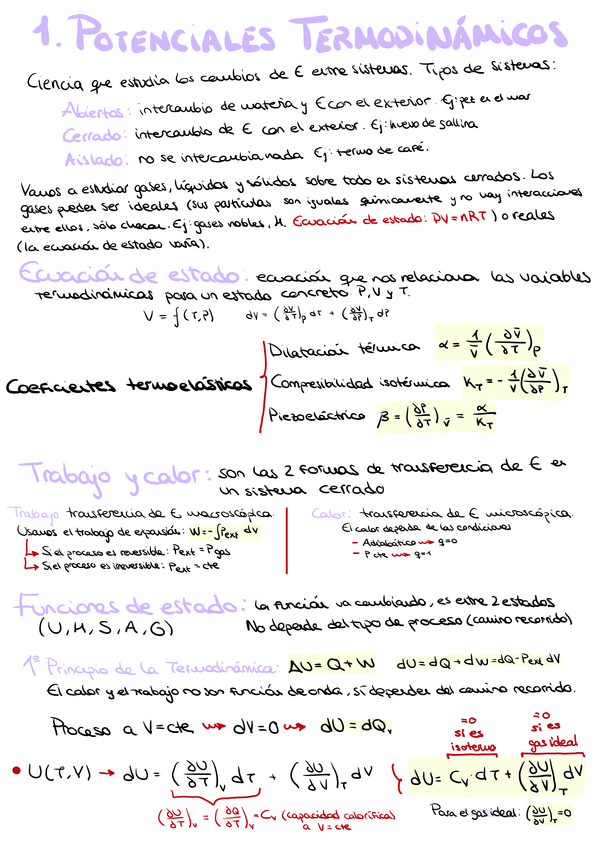 1. POTENCIALES TERMODINÁMICOS
Ciencia que estudia los cambios de E entre sistemas. Tipos de sistemas:
Abiertos: intercambio de materia y E con el exterior. Ej: pez en el mar
Cerrado: intercambio de E con el exterior. Ej: huevo de gallina
Aislado: no se intercambia nada Ej: termo de café.
Vamos a estudiar gases, líquidos y sólidos sobre todo en sistemas cerrados. Los
gases pueden ser ideales (sus partículas son iguales químicamente y no hay interacciones
entre ellos, sólo chocan. Ej: gases nobles, H. Ecuación de estado: PV=nRT) o reales
(la ecuación de estado varía).
Ecuación de estado: ecuación que nos relaciona las variables
termodinámicas para un estado concreto: P, V y T.
V = f(T,P) dV = (∂V/∂T)_P dT + (∂V/∂P)_T dP
Dilatación térmica α = 1/V̄ (∂V̄/∂T)_P
Coeficientes termoelásticos Compresibilidad isotérmica K_T = - 1/V̄ (∂V̄/∂P)_T
Piezoeléctrico β = (∂P/∂T)_V̄ = α/K_T
Trabajo y calor: son las 2 formas de transferencia de E en
un sistema cerrado
Trabajo transferencia de E macroscópica.
Usamos el trabajo de expansión: W = -∫P_ext dV
↳ Si el proceso es reversible: P_ext = P_gas
↳ Si el proceso es irreversible: P_ext = cte
Calor: transferencia de E microscópica.
El calor depende de las condiciones
- Adiabático → q=0
- P cte → q=1
Funciones de estado: la función va cambiando, es entre 2 estados
(U, H, S, A, G) No depende del tipo de proceso (camino recorrido)
1º Principio de la Termodinámica: ΔU = Q + W dU = dQ + dW = dQ - P_ext dV
El calor y el trabajo no son función de onda, sí dependen del camino recorrido.
Proceso a V=cte → dV=0 → dU = dQ_v
=0 si es isotermo
=0 si es gas ideal
• U(T,V) → dU = (∂U/∂T)_V dT + (∂U/∂V)_T dV } dU = C_V · dT + (∂U/∂V)_T dV
(∂U/∂T)_V = (∂Q/∂T)_V = C_V (capacidad calorífica)
a V=cte
Para el gas ideal: (∂U/∂V)_T = 0